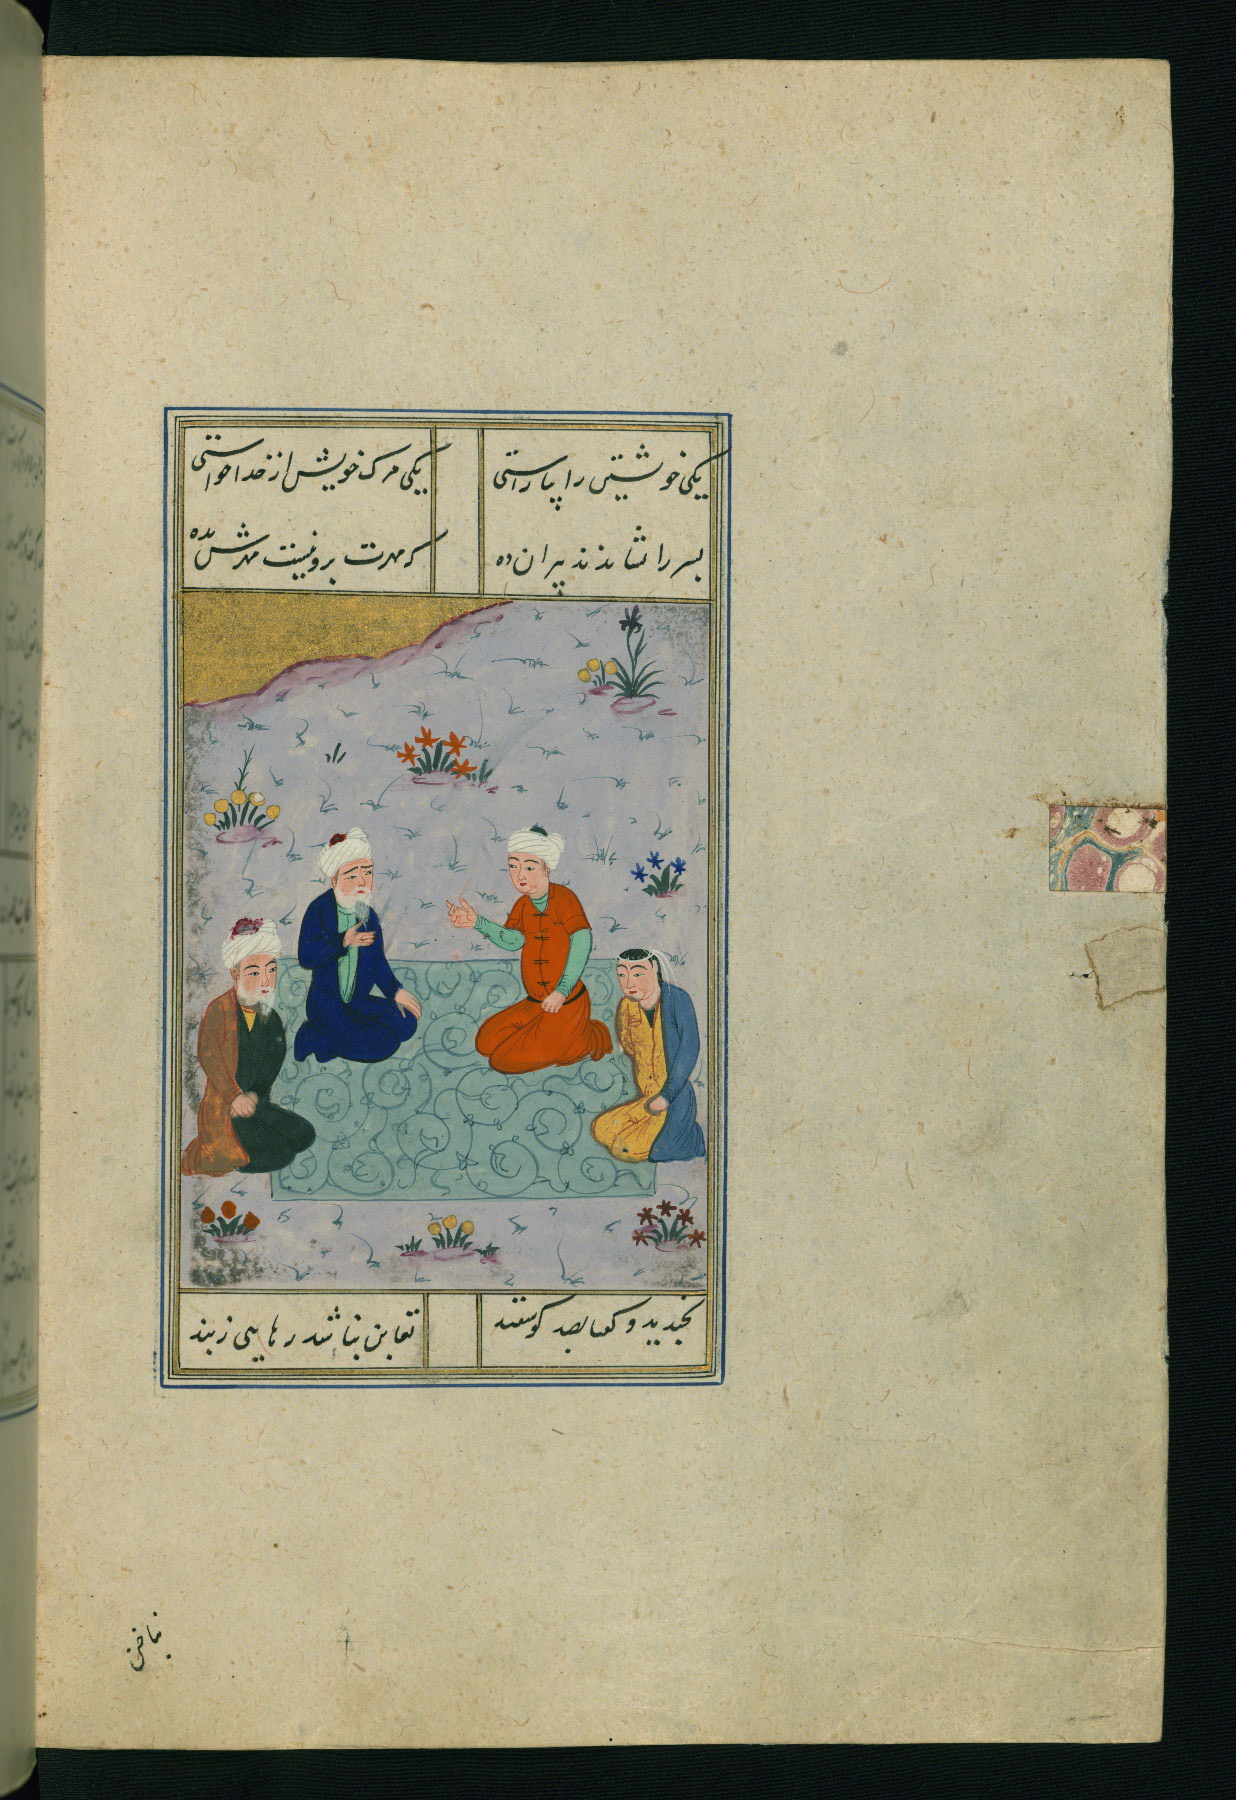 یکی خویشتن را بیاراستی
یکی مرک خویش از خدا خواستی
پسر را نشاندند پیران ده
که مهرت برو نیست مهرش بده
بخندید و کفتا بصد کوسفند
تغابن نباشد رهایی ز بند
بناخن